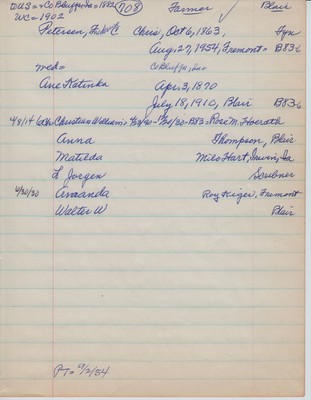 DUS=Co Bluffs Ia=1882 708 Farmer Blair
WC=1902
Petersen, Chris, Oct 6, 1863, Fyn
Aug. 27, 1954, Fremont= B836
md= Co Bluffs, Ia=
Ane Katinka Apr. 3, 1870
July 18, 1910, Blair B836
4/8/14 Christian William= Rose M.
Anna Thompson, Blair
Matilda Milo Hart, Irwin, Ia
L Jorgen Scribner
4/20/20 Amanda Roy Kiger, Fremont
Walter W Blair
PT= 9/2/54